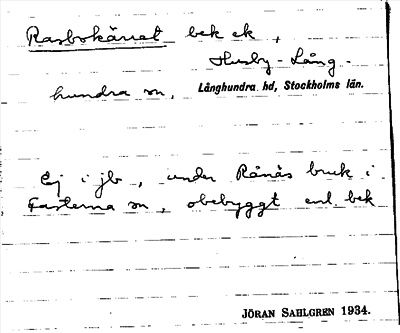 Rasbokärret bek ek,
Husby-Lång-
hundra sn, Långhundra hd, Stockholms län.
Ej i jb, under Rånäs bruk i
Fasterna sn, obebyggt enl. bek
JÖRAN SAHLGREN 1934.